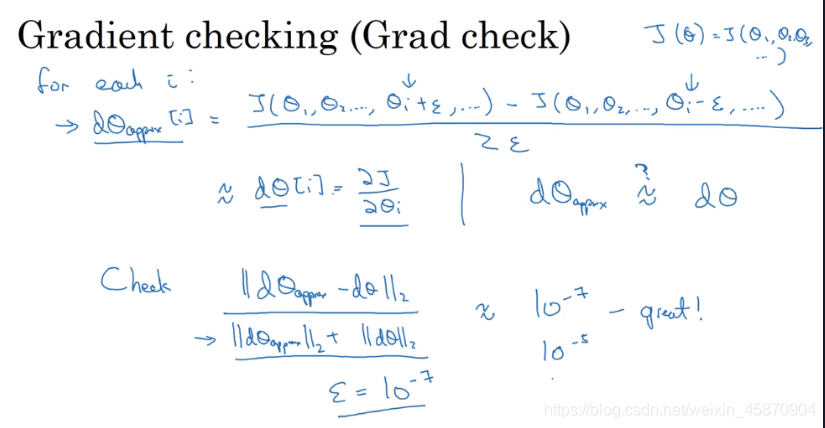 Gradient checking (Grad check)
J(θ) = J(θ₁, θ₂, θ₃, ...)
for each i:
→ dθapprox[i] = (J(θ₁, θ₂, ..., θᵢ+ε, ...) - J(θ₁, θ₂, ..., θᵢ-ε, ...)) / 2ε
≈ dθ[i] = ∂J/∂θᵢ | dθapprox ≈? dθ
Check ||dθapprox - dθ||₂
→ ||dθapprox||₂ + ||dθ||₂
≈ 10⁻⁷ - great!
10⁻⁵
ε = 10⁻⁷
https://blog.csdn.net/weixin_45870904